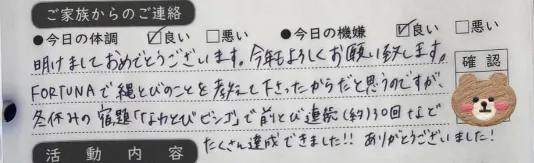 ご家族からのご連絡
●今日の体調 ☑良い □悪い ●今日の機嫌 ☑良い □悪い
明けましておめでとうございます。今年もよろしくお願い致します。
FORTUNAで縄とびのことを教えて下さったからだと思うのですが、
冬休みの宿題「なわとびビンゴ」で前とび連続(約)130回など
たくさん達成できました!! ありがとうございました!
確認
活動内容